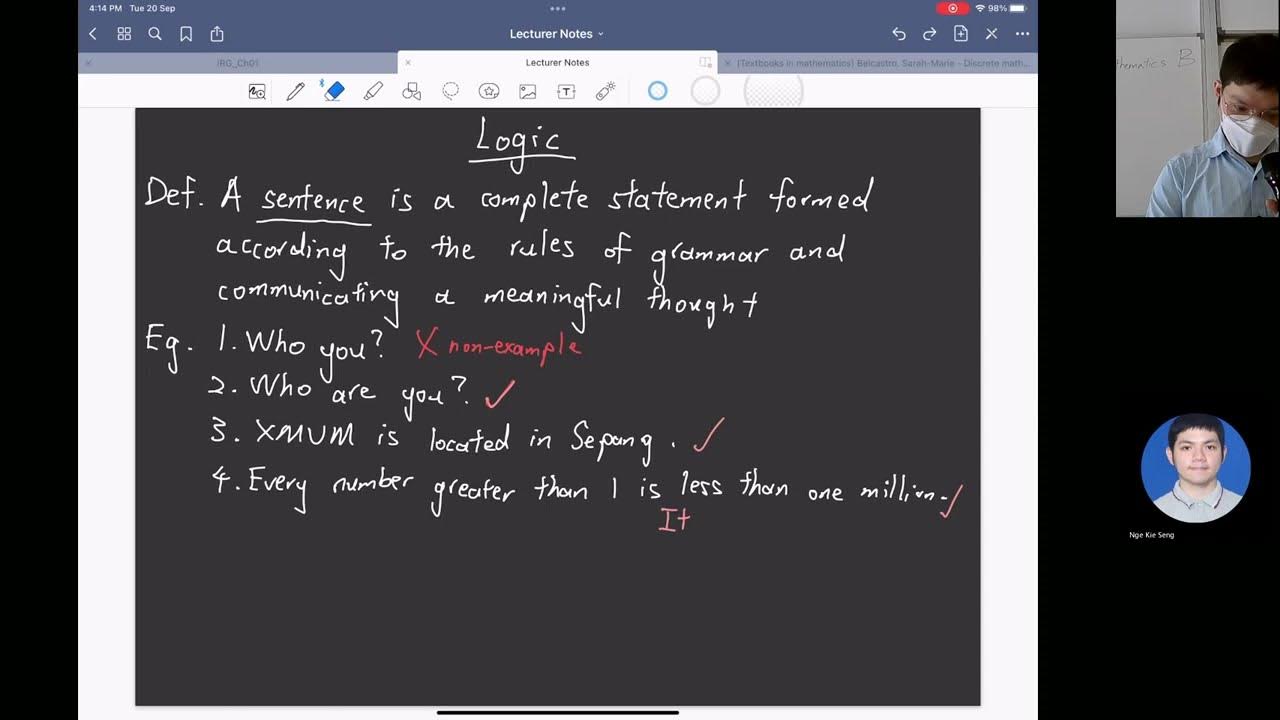 4:14 PM Tue 20 Sep
98%
Lecturer Notes
IRG_Ch01
Lecturer Notes
(Textbooks in mathematics) Belcastro, Sarah-Marie - Discrete math...
Logic
Def. A sentence is a complete statement formed
according to the rules of grammar and
communicating a meaningful thought
Eg. 1. Who you? X non-example
2. Who are you? ✓
3. XMUM is located in Sepang. ✓
4. Every number greater than 1 is less than one million. ✓
It
thematics B
Nge Kie Seng